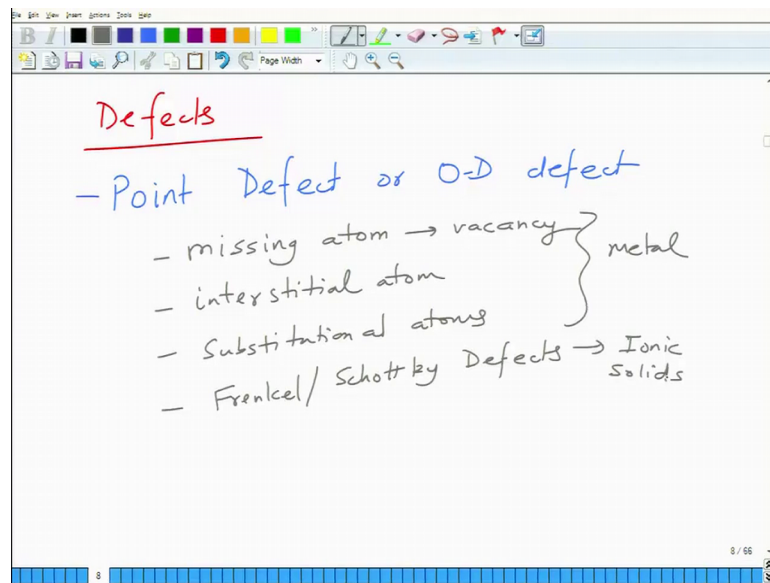 File Edit View Insert Actions Tools Help
B I
Page Width
Defects
- Point Defect or O-D defect
- missing atom → vacancy } metal
- interstitial atom
- Substitutional atoms
- Frenkel/Schottky Defects → Ionic
Solids
8 / 66
8